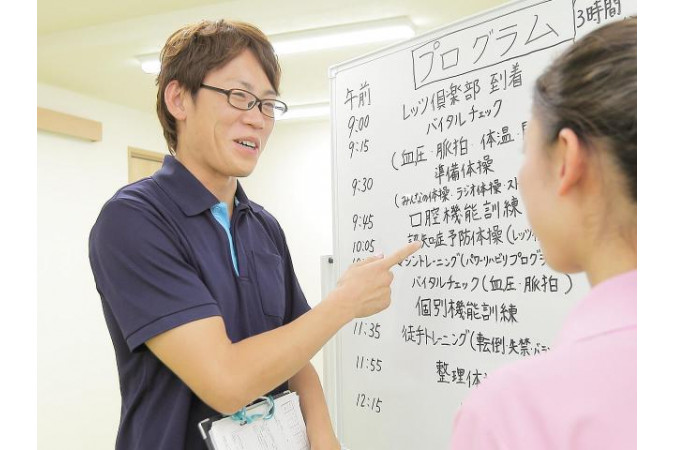 プログラム 3時間
午前
9:00 レッツ倶楽部 到着
9:15 バイタルチェック
(血圧・脈拍・体温・
9:30 準備体操
(みんなの体操・ラジオ体操・スト
9:45 口腔機能訓練
10:05 認知症予防体操(レッツ
マシントレーニング(パワーリハビリプログラ
バイタルチェック(血圧・脈拍)
個別機能訓練
11:35 徒手トレーニング(転倒・失禁・バラ
11:55 整理体
12:15